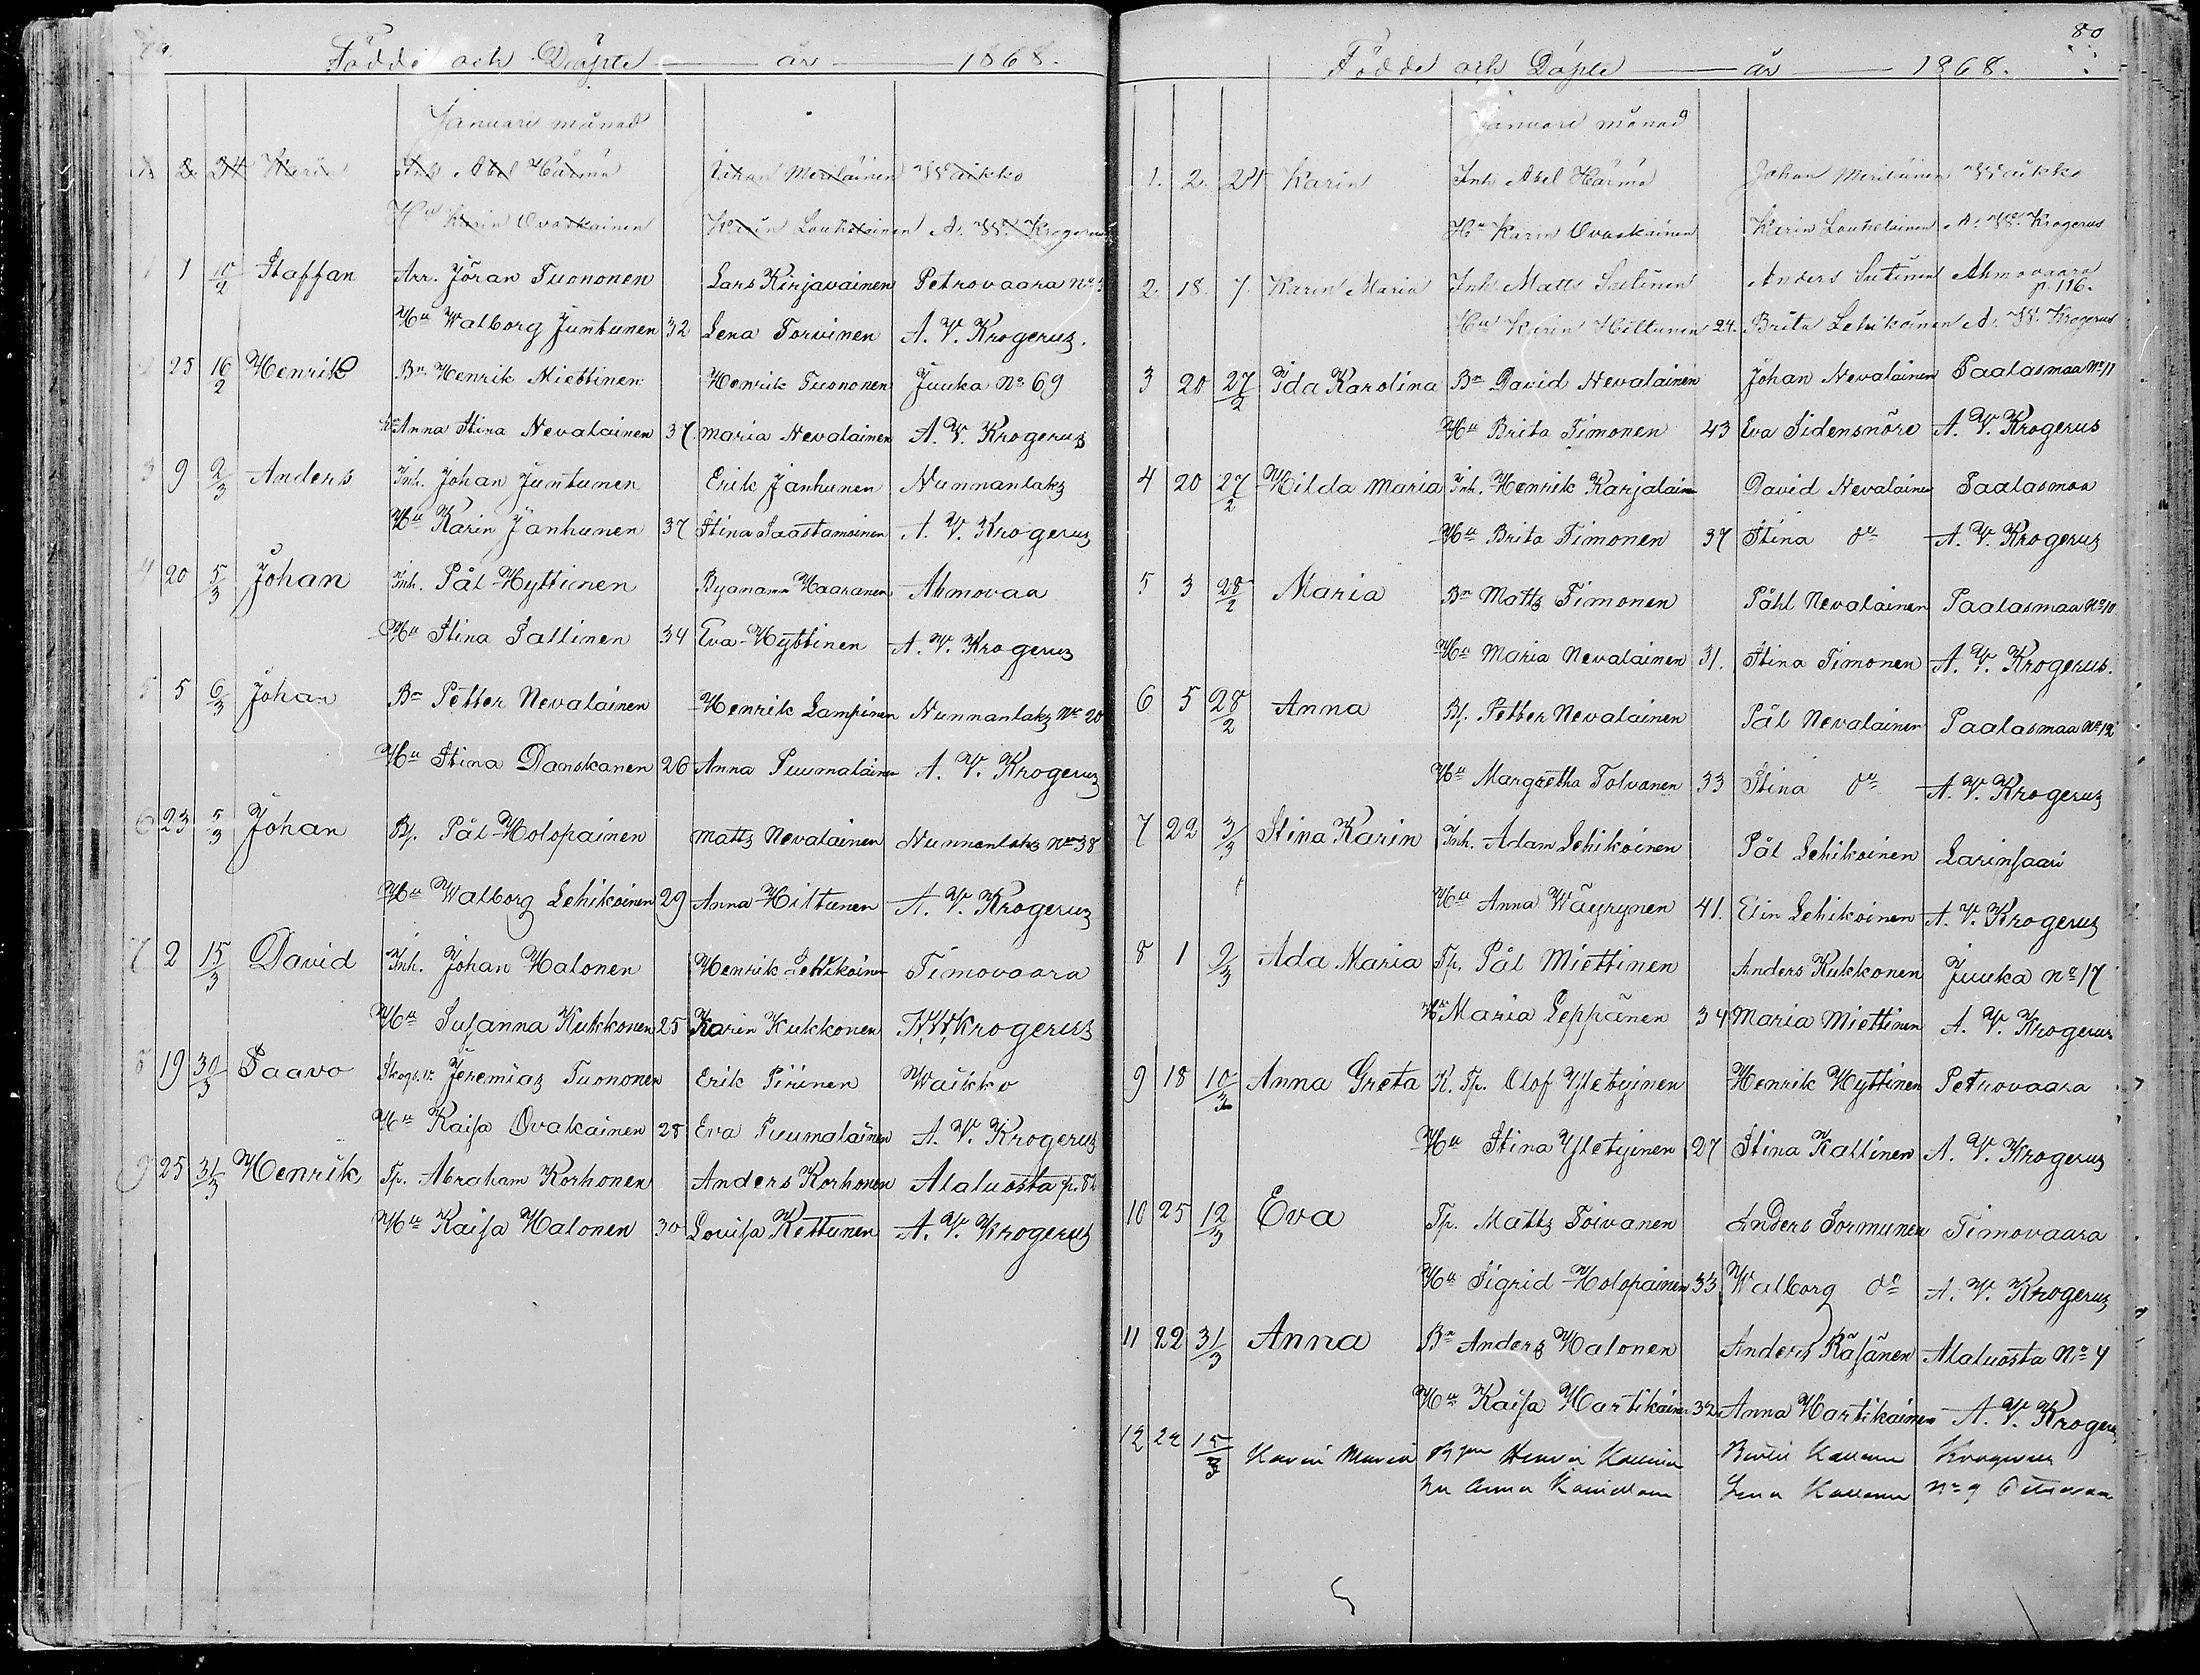 Födde och Döpte år 1868.
Januari månad
1 2 24 Karin Inh Abel Härmä Johan Meriläinen Waikko
Hu Karin Ovaskainen Karin Loukelainen A. W. Krogerus
1 1 15/2 Staffan Arr. Jöran Tuononen Lars Kirjavainen Petrovaara No
Hu Walborg Juntunen 32 Lena Torvinen A. V. Krogerus.
25 16/2 Henrik Bn Henrik Miettinen Henrik Tuononen Juuka No 69
Hu Anna Stina Nevalainen 37. Maria Nevalainen A. V. Krogerus
3 9 2/3 Anders Inh. Johan Juntunen Erik Janhunen Nunnanlaks
Hu Karin Janhunen 37 Stina Saastamoinen A. V. Krogerus
4 20 5/3 Johan Inh. Pål Hyttinen Haaranen Ahmovaa
Hu Stina Sallinen 34 Eva Hyttinen A. V. Krogerus
5 5 6/3 Johan Bn Petter Nevalainen Henrik Lampinen Nunnanlaks No 20
Hu Stina Danskanen 26 Anna Puumalainen A. V. Krogerus
6 23 5/3 Johan Bf. Pål Holopainen Matts Nevalainen Nunnanlaks No 38
Hu Walborg Lehikoinen 29 Anna Hiltunen A. V. Krogerus
7 2 15/3 David Inh. Johan Halonen Henrik Lehikoinen Timovaara
Hu Susanna Kukkonen 25 Karin Kukkonen A. W. Krogerus
8 19 30/3 Paavo Skogs.v. Jeremias Tuononen Erik Piirinen Waikko
Hu Kaisa Ovakainen 28 Eva Puumalainen A. V. Krogerus
9 25 31/3 Henrik Tp. Abraham Korhonen Anders Korhonen Alaluosta p. 82
Hu Kaisa Halonen 30 Lovisa Kettunen A. V. Krogerus
80
Födde och Döpte år 1868.
Januari månad
1. 2. 24 Karin Inh Abel Härmä Johan Meriläinen Waikko
Hu Karin Ovaskainen Karin Loukelainen A. W. Krogerus
2. 18. 7. Karin Maria Inh Matts Saelinen Anders Ahmovaara p. 116.
Hu Karin Hiltunen 24. Brita Lehikoinen A. W. Krogerus
3 20 27/2 Ida Karolina Bn David Nevalainen Johan Nevalainen Paalasmaa No 11
Hu Brita Timonen 43 Eva Sidensnöre A. V. Krogerus
4 20 27/2 Hilda Maria Inh. Henrik Karjalain David Nevalainen Paalasmaa
Hu Brita Timonen 37 Stina do A. V. Krogerus
5 3 28/2 Maria Bn Matts Timonen Påhl Nevalainen Paalasmaa No 10
Hu Maria Nevalainen 31. Stina Timonen A. V. Krogerus.
6 5 28/2 Anna Bf. Petter Nevalainen Pål Nevalainen Paalasmaa No 12
Hu Margretha Tolvanen 33 Stina do A. V. Krogerus
7 22 3/3 Stina Karin Inh. Adam Lehikoinen Pål Lehikoinen Larinsaari
Hu Anna Wäyrynen 41. Elin Lehikoinen A. V. Krogerus
8 1 9/3 Ada Maria Tp. Pål Miettinen Anders Kukkonen Juuka No 17
Hu Maria Leppänen 34 Maria Miettinen A. V. Krogerus
9 18 10/3 Anna Greta K. Tp. Olof Yletyinen Henrik Hyttinen Petrovaara
Hu Stina Yletyinen 27 Stina Kallinen A. V. Krogerus
10 25 12/3 Eva Tp. Matts Toivanen Anders Sormunen Timovaara
Hu Sigrid Holopainen 33 Walborg do A. V. Krogerus
11 22 31/3 Anna Bn Anders Halonen Anders Räsänen Alaluosta No 4
Hu Kaisa Hartikainen 32 Anna Hartikainen A. V. Kroger
12 22 15/3 Karin Maria Krogerus
Hu Anna Lena No 9